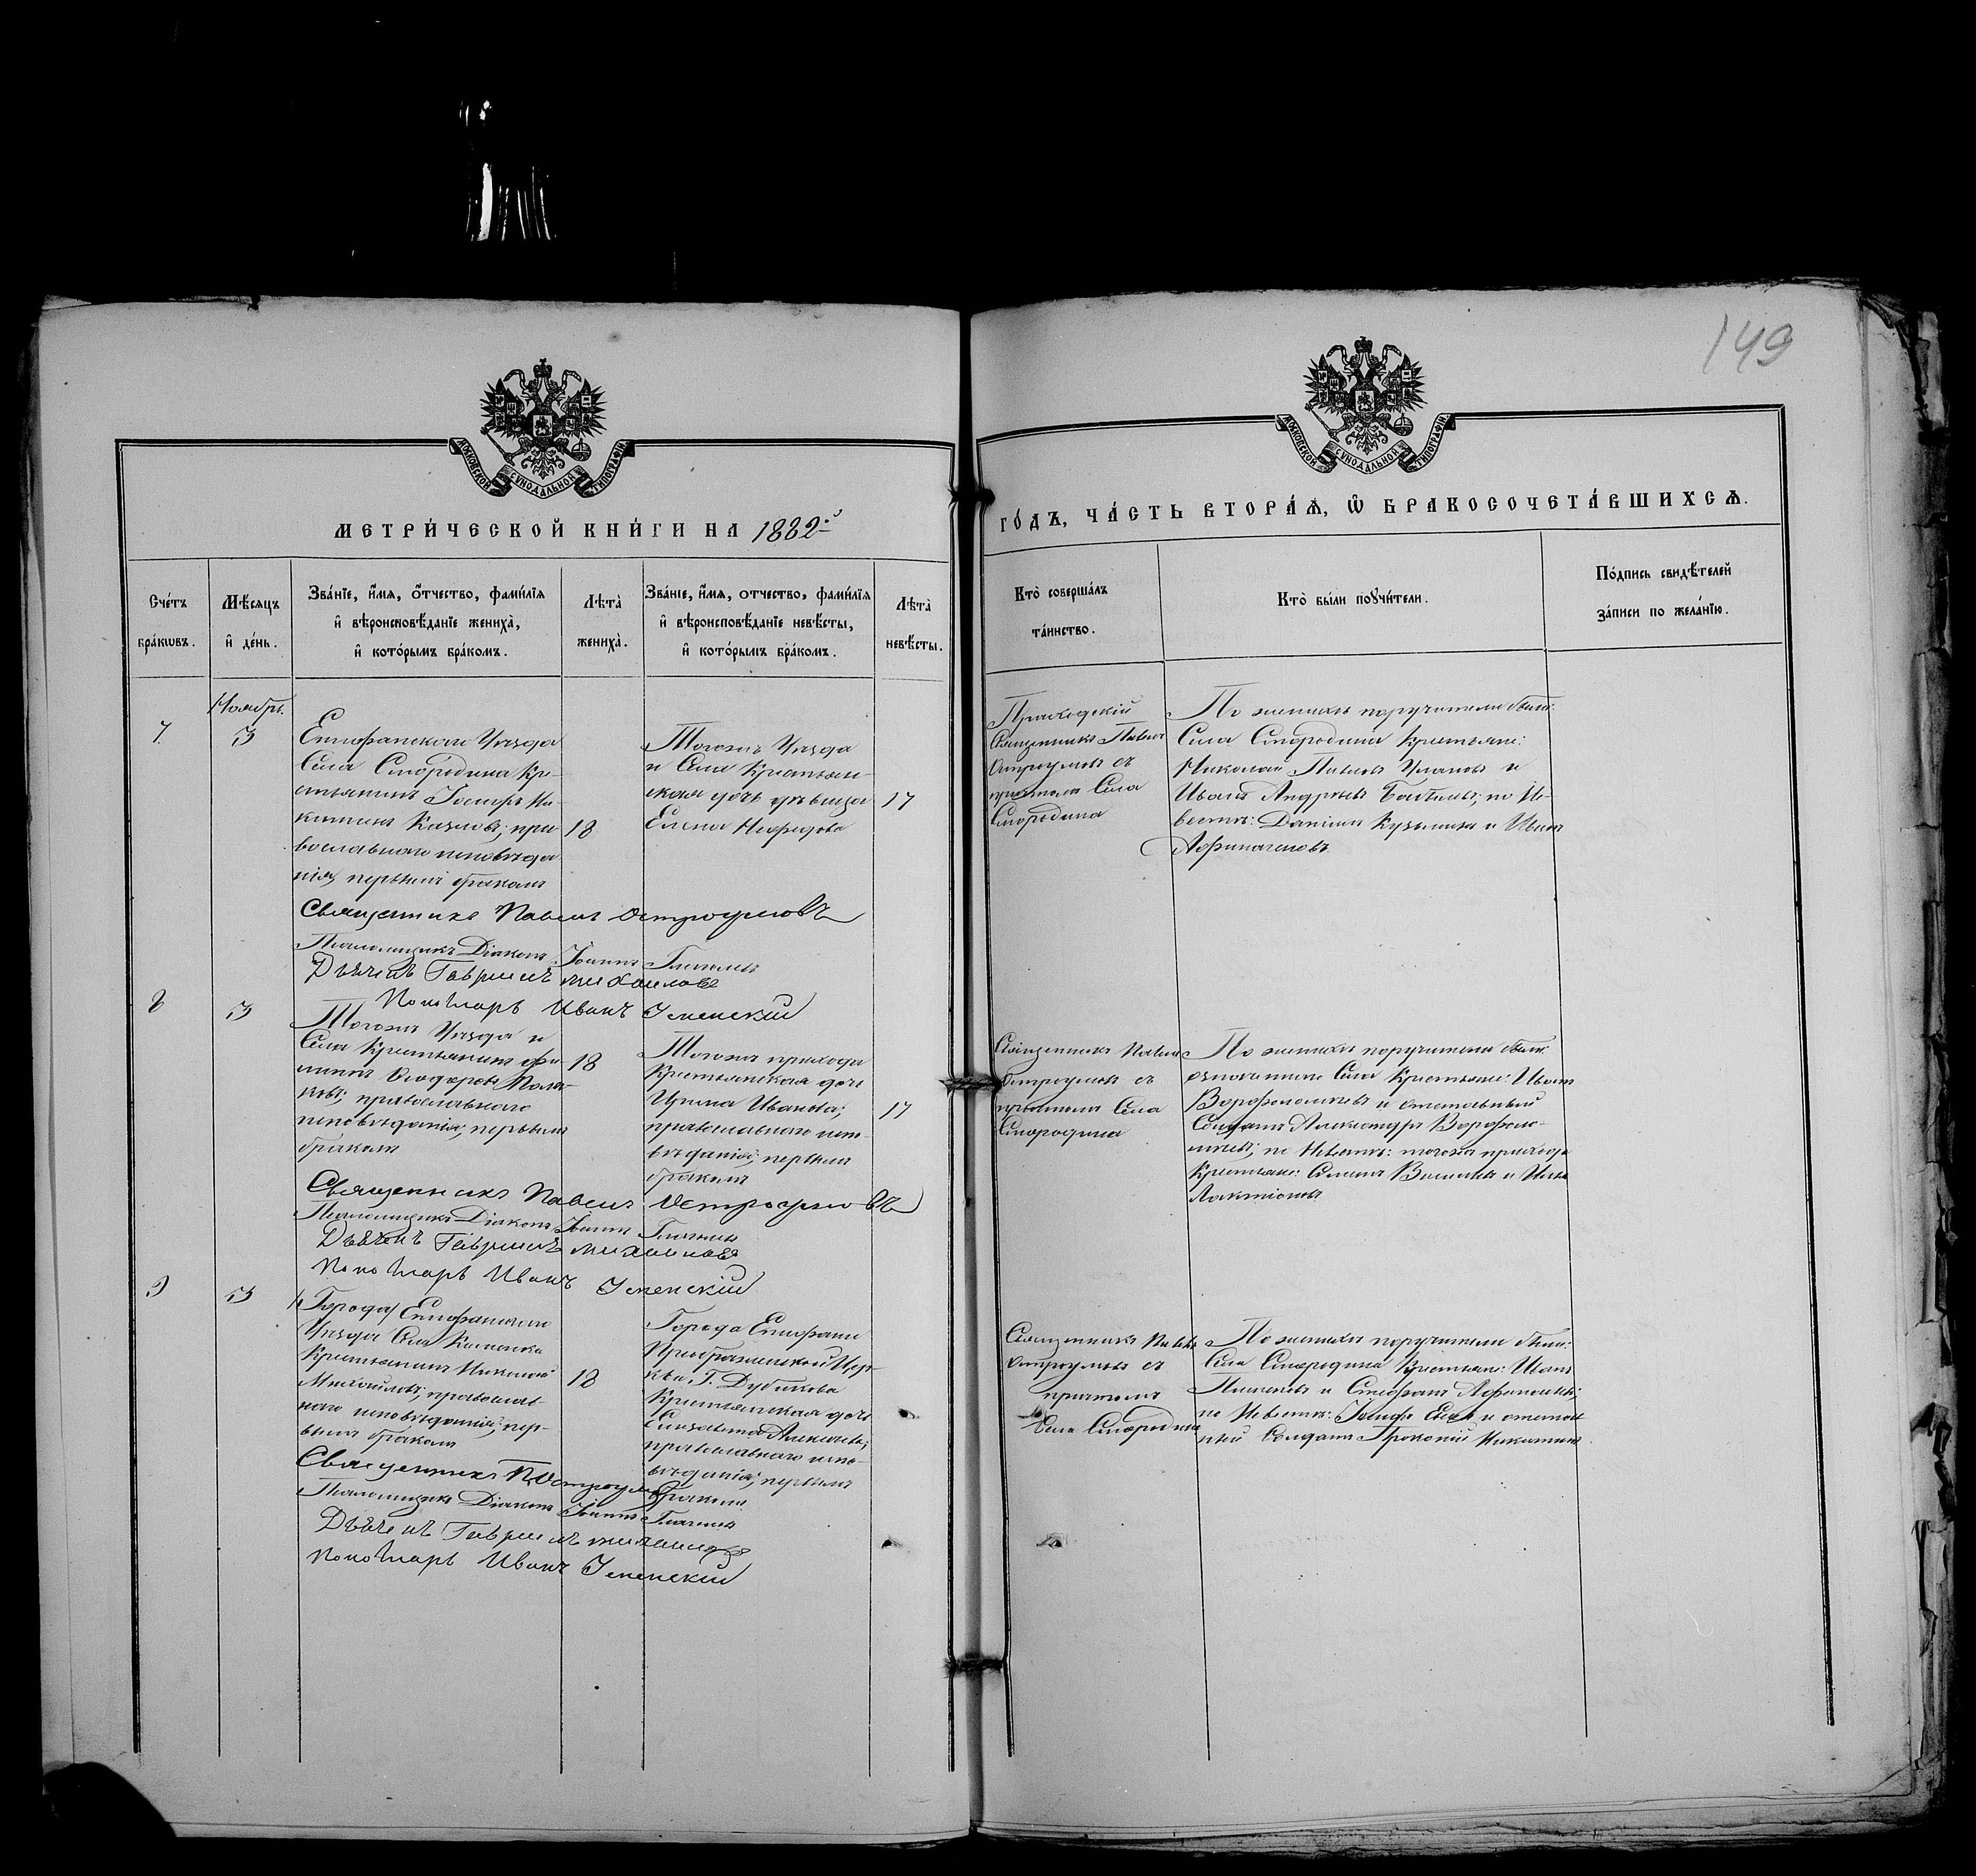 149
МОСКОВСКОЙ СѴНОДАЛЬНОЙ ТИПОГРАФІИ
МОСКОВСКОЙ СѴНОДАЛЬНОЙ ТИПОГРАФІИ
МЕТРИ́ЧЕСКОЙ КНИ́ГИ НА 1882й
ГО́ДЪ, ЧА́СТЬ ВТОРА́Ѧ, Ѽ БРАКОСОЧЕТА́ВШИХСѦ.
Сче́тъ
бра́кѡвъ.
Мѣ́сѧцъ
и҆ де́нь.
Зва́нїе, и҆́мѧ, ѻ҆́тчество, фами́лїѧ
и҆ вѣроисповѣ́данїе жениха̀,
и҆ кото́рымъ бра́комъ.
Лѣта̀
жениха̀.
Зва́нїе, и҆́мѧ, ѻ҆́тчество, фами́лїѧ
и҆ вѣроисповѣ́данїе невѣ́сты,
и҆ кото́рымъ бра́комъ.
Лѣта̀
невѣ́сты.
Кто̀ соверша́лъ
та́инство.
Кто̀ бы́ли поꙋчи́тели.
По́дпись свидѣ́телей
за́писи по жела́нїю.
Ноябрь.
7.
3
Епифанскаго Уѣзда
Села Смородина Кре-
стьянинъ Іосифъ Ни-
китинъ Козловъ; пра-
вославнаго исповѣда
нія, первымъ бракомъ
18
Тогожъ Уѣзда
и Села Крестьян-
ская дочь дѣвица
Елена Неофидова
17
Приходскій
Священникъ Павелъ
Остроумовъ съ
причтомъ Села
Смородина
По женихѣ поручители были:
Села Смородина Крестьяне:
Николай Павловъ и
Иванъ Андреевъ по Не-
вѣстѣ: Даніилъ Кузьминъ и Иванъ
Священникъ Павелъ Остроумовъ
Псаломщикъ Діаконъ Іоаннъ Глаголевъ
Дьячекъ Гавриилъ Михайловъ
Пономарь Иванъ Успенскій
8
3
Тогожъ Уѣзда и
Села Крестьянинъ
Ѳеодоровъ
православнаго
исповѣданія, первымъ
бракомъ
18
Тогожъ прихода
Крестьянская дочь
Ирина Иванова;
православнаго испо-
вѣданія; первымъ
бракомъ
17
Священникъ Павелъ
Остроумовъ съ
причтомъ Села
Смородина
По женихѣ поручители были:
означеннаго Села Крестьяне: Иванъ
Ворофоломѣевъ и отставный
Солдатъ Александръ Ворофоло-
мѣевъ; по Невѣстѣ: тогожъ прихода
Крестьяне: Васильевъ и
Лактіоновъ
Священникъ Павелъ Остроумовъ
Псаломщикъ Діаконъ Іоаннъ Глаголевъ
Дьячекъ Гавриилъ Михайловъ
Пономарь Иванъ Успенскій
9
3
Города Епифанскаго
Уѣзда Села Каменка
Крестьянинъ Николай
Михайловъ; православ-
наго исповѣданія; пер-
вымъ бракомъ
18
Города Епифани
Преображенской Цер-
кви Г. Дубикова
Крестьянская дочь
Елизавета Алексѣева;
православнаго испо-
вѣданія; первымъ
бракомъ
Священникъ Павелъ
Остроумовъ съ
причтомъ
Села Смородина
По женихѣ поручители были:
Села Смородина Крестьяне: Иванъ
Пименовъ и Стефанъ
по Невѣстѣ: и отстав
ный Солдатъ Прокопій Никитинъ
Священникъ П. Остроумовъ
Псаломщикъ Діаконъ Іоаннъ Глаголевъ
Дьячекъ Гавриилъ Михайловъ
Пономарь Иванъ Успенскій